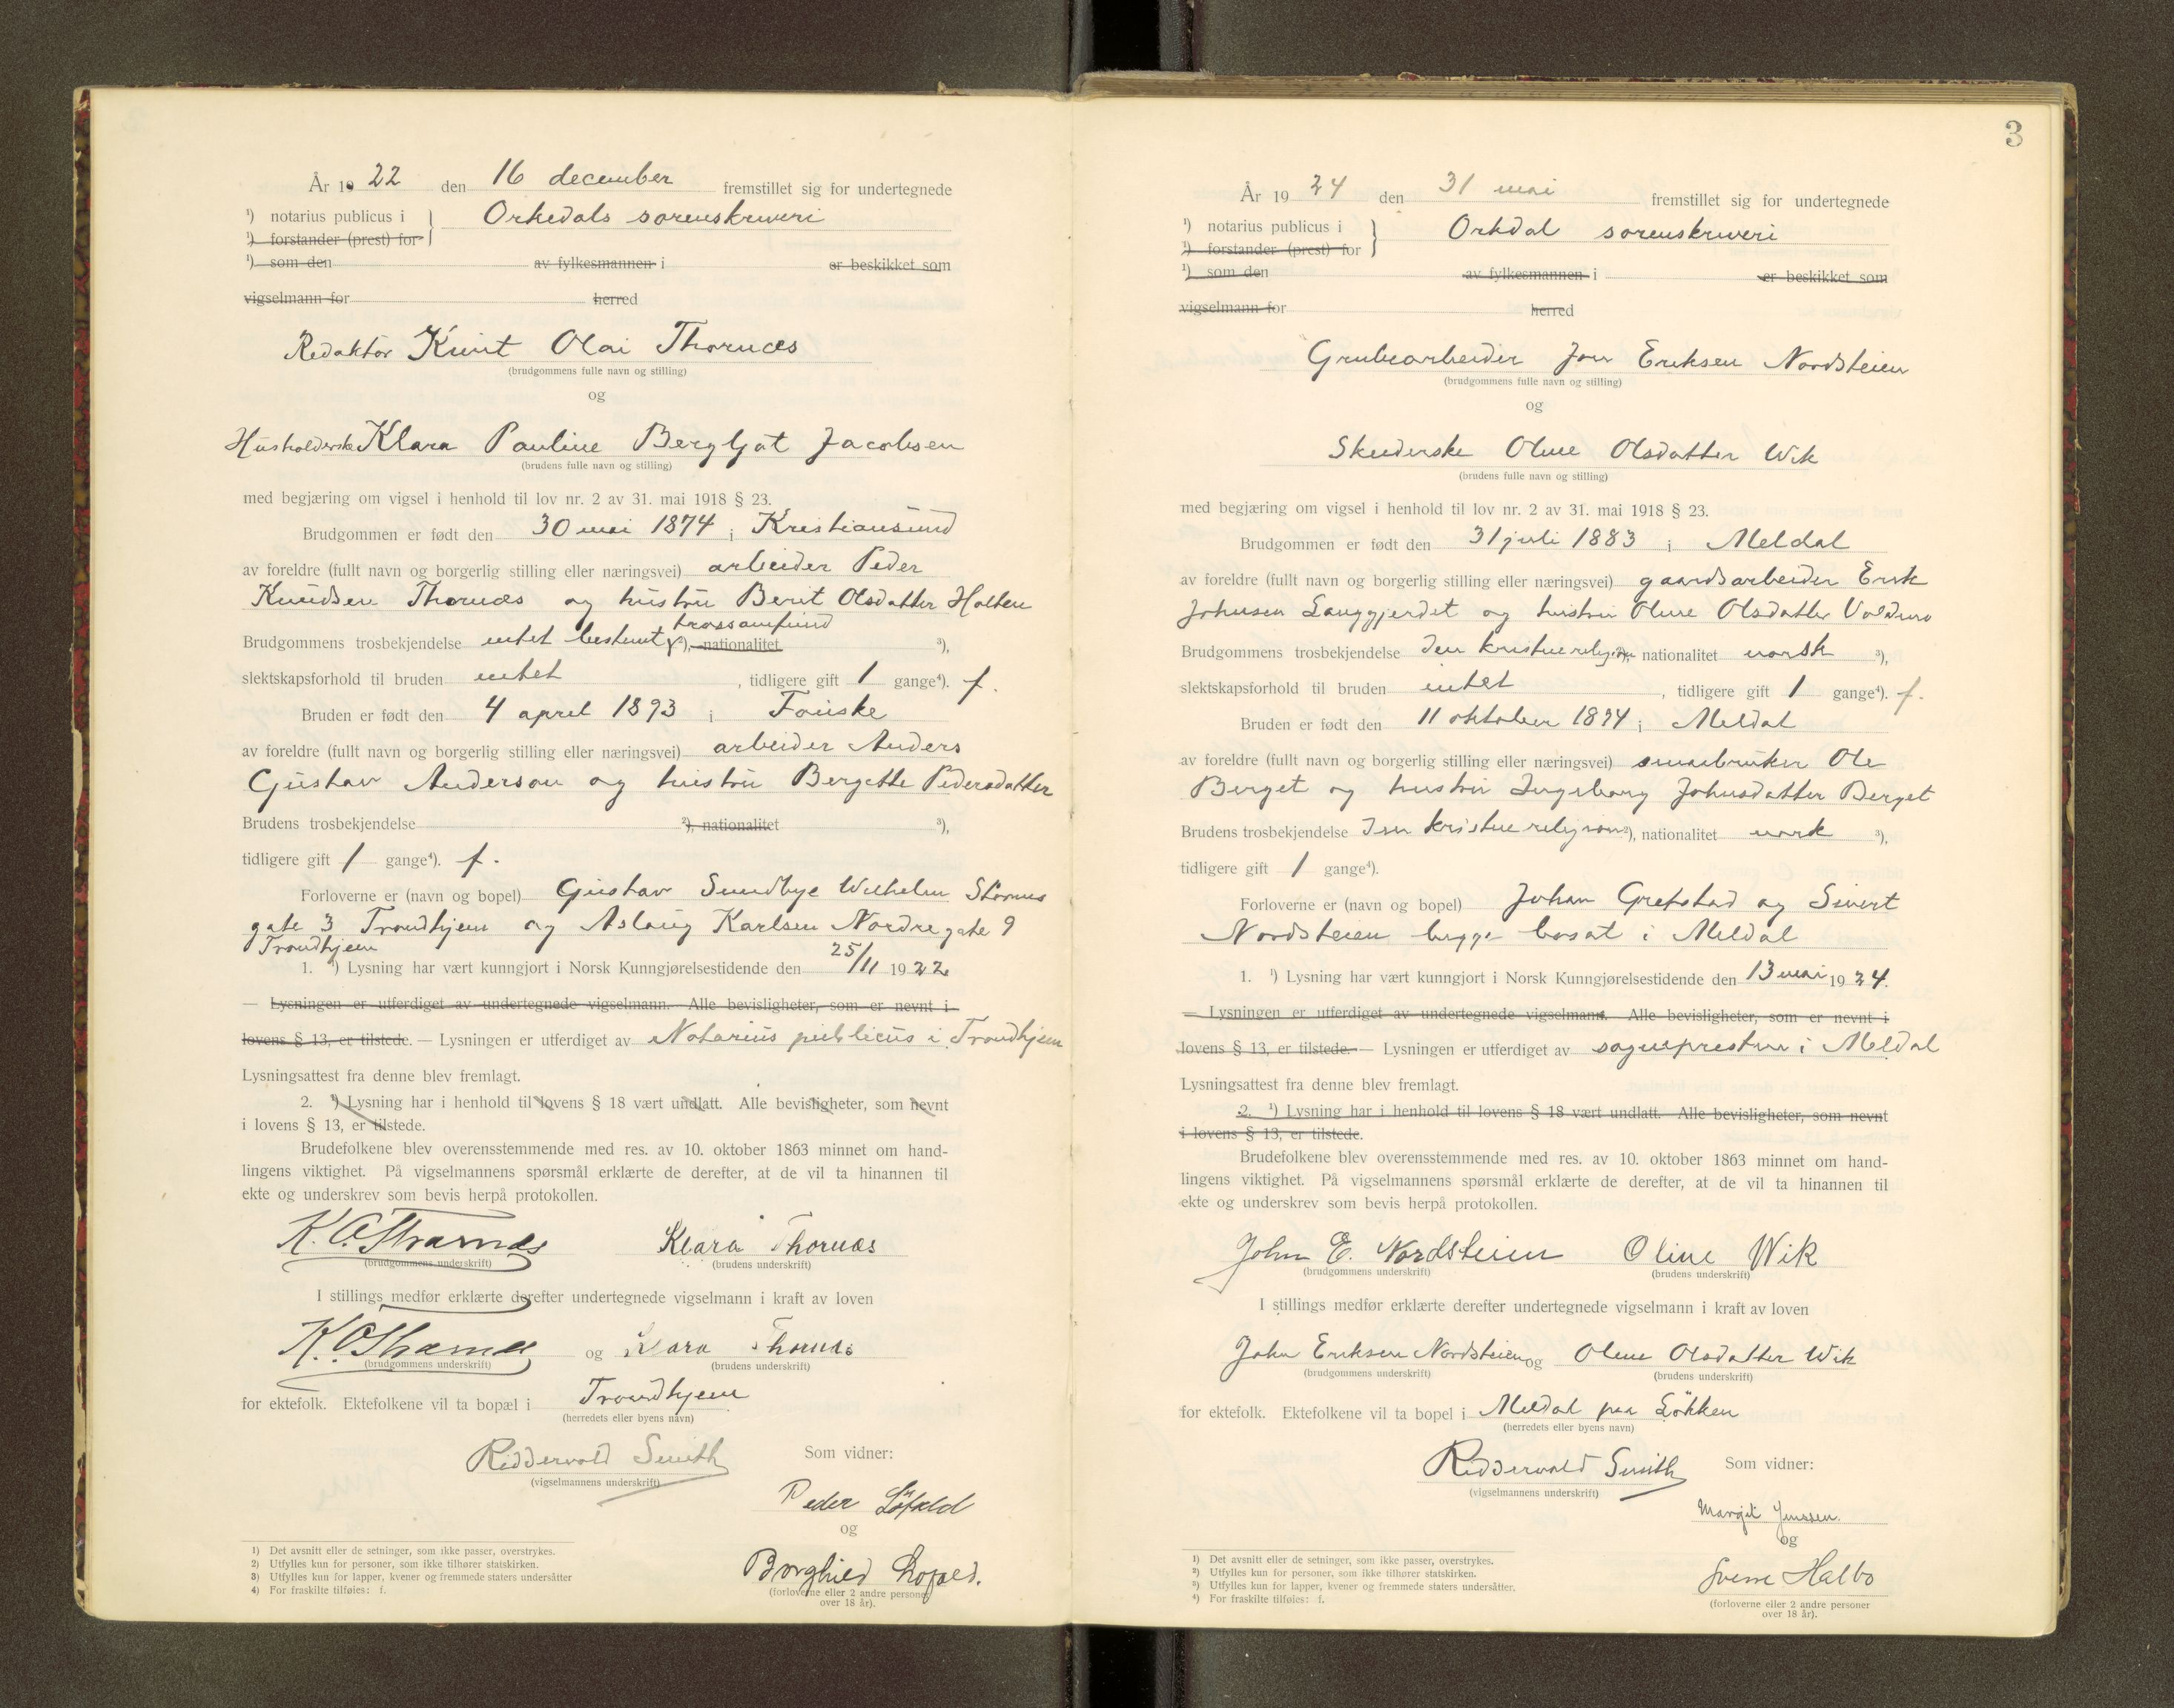 År 1922 den 16 december fremstillet sig for undertegnede
¹) notarius publicus i } Orkedals sorenskriveri
¹) forstander (prest) for
¹) som den av fylkesmannen i er beskikket som
vigselmann for herred
Redaktør Knut Olai Thornæs
(brudgommens fulle navn og stilling)
og
Husholderske Klara Pauline Bergljot Jacobsen
(brudens fulle navn og stilling)
med begjæring om vigsel i henhold til lov nr. 2 av 31. mai 1918 § 23.
Brudgommen er født den 30 mai 1874 i Kristiansund
av foreldre (fullt navn og borgerlig stilling eller næringsvei) arbeider Peder
Knudsen Thornæs og hustru Berit Olsdatter Holten
trossamfund
Brudgommens trosbekjendelse intet bestemt ²), nationalitet ³),
slektskapsforhold til bruden intet , tidligere gift 1 gange⁴). f.
Bruden er født den 4 april 1893 i Fauske
av foreldre (fullt navn og borgerlig stilling eller næringsvei) arbeider Anders
Gustav Anderson og hustru Bergette Pedersdatter
Brudens trosbekjendelse ²), nationalitet ³),
tidligere gift 1 gange⁴). f.
Forloverne er (navn og bopel) Gustav Sundbye Wilhelm Storms
gate 3 Trondhjem og Aslaug Karlsen Nordre gate 9
Trondhjem
1. ¹) Lysning har vært kunngjort i Norsk Kunngjørelsestidende den 25/11 1922
— Lysningen er utferdiget av undertegnede vigselmann. Alle bevisligheter, som er nevnt i
lovens § 13, er tilstede. — Lysningen er utferdiget av Notarius publicus i Trondhjem
Lysningsattest fra denne blev fremlagt.
2. ¹) Lysning har i henhold til lovens § 18 vært undlatt. Alle bevisligheter, som nevnt
i lovens § 13, er tilstede.
Brudefolkene blev overensstemmende med res. av 10. oktober 1863 minnet om hand-
lingens viktighet. På vigselmannens spørsmål erklærte de derefter, at de vil ta hinannen til
ekte og underskrev som bevis herpå protokollen.
K. O. Thornæs Klara Thornæs
(brudgommens underskrift) (brudens underskrift)
I stillings medfør erklærte derefter undertegnede vigselmann i kraft av loven
K. O. Thornæs og Klara Thornæs
(brudgommens underskrift) (brudens underskrift)
for ektefolk. Ektefolkene vil ta bopæl i Trondhjem
(herredets eller byens navn)
Riddervold Smith Som vidner:
(vigselmannens underskrift)
Peder Löfald
og
Borghild Lofald.
(forloverne eller 2 andre personer
over 18 år).
1) Det avsnitt eller de setninger, som ikke passer, overstrykes.
2) Utfylles kun for personer, som ikke tilhører statskirken.
3) Utfylles kun for lapper, kvener og fremmede staters undersåtter
4) For fraskilte tilføies: f.
3
År 1924 den 31 mai fremstillet sig for undertegnede
¹) notarius publicus i } Orkdal sorenskriveri
¹) forstander (prest) for
¹) som den av fylkesmannen i er beskikket som
vigselmann for herred
Grubearbeider Jon Eriksen Nordsteien
(brudgommens fulle navn og stilling)
og
Skrederske Oline Olsdatter Wik
(brudens fulle navn og stilling)
med begjæring om vigsel i henhold til lov nr. 2 av 31. mai 1918 § 23.
Brudgommen er født den 31 juli 1883 i Meldal
av foreldre (fullt navn og borgerlig stilling eller næringsvei) gaardsarbeider Erik
Johnsen Langgjerdet og hustru Oline Olsdatter
Brudgommens trosbekjendelse den kristne religion ²), nationalitet norsk ³),
slektskapsforhold til bruden intet , tidligere gift 1 gange⁴). f.
Bruden er født den 11 oktober 1874 i Meldal
av foreldre (fullt navn og borgerlig stilling eller næringsvei) smaabruker Ole
Berget og hustru Ingeborg Johnsdatter Berget
Brudens trosbekjendelse den kristne religion ²), nationalitet norsk ³),
tidligere gift 1 gange⁴).
Forloverne er (navn og bopel) Johan Grefstad og Sivert
Nordsteien begge bosat i Meldal
1. ¹) Lysning har vært kunngjort i Norsk Kunngjørelsestidende den 13 mai 1924.
— Lysningen er utferdiget av undertegnede vigselmann. Alle bevisligheter, som er nevnt i
lovens § 13, er tilstede. — Lysningen er utferdiget av sognepresten i Meldal
Lysningsattest fra denne blev fremlagt.
2. ¹) Lysning har i henhold til lovens § 18 vært undlatt. Alle bevisligheter, som nevnt
i lovens § 13, er tilstede.
Brudefolkene blev overensstemmende med res. av 10. oktober 1863 minnet om hand-
lingens viktighet. På vigselmannens spørsmål erklærte de derefter, at de vil ta hinannen til
ekte og underskrev som bevis herpå protokollen.
John E. Nordsteien Oline Wik
(brudgommens underskrift) (brudens underskrift)
I stillings medfør erklærte derefter undertegnede vigselmann i kraft av loven
John Eriksen Nordsteien og Oline Olsdatter Wik
(brudgommens underskrift) (brudens underskrift)
for ektefolk. Ektefolkene vil ta bopel i Meldal paa Lökken
(herredets eller byens navn)
Riddervold Smith Som vidner:
(vigselmannens underskrift)
Margit Jenssen.
og
Sverre Halbo
(forloverne eller 2 andre personer
over 18 år).
¹) Det avsnitt eller de setninger, som ikke passer, overstrykes.
²) Utfylles kun for personer, som ikke tilhører statskirken.
³) Utfylles kun for lapper, kvener og fremmede staters undersåtter.
⁴) For fraskilte tilføies: f.